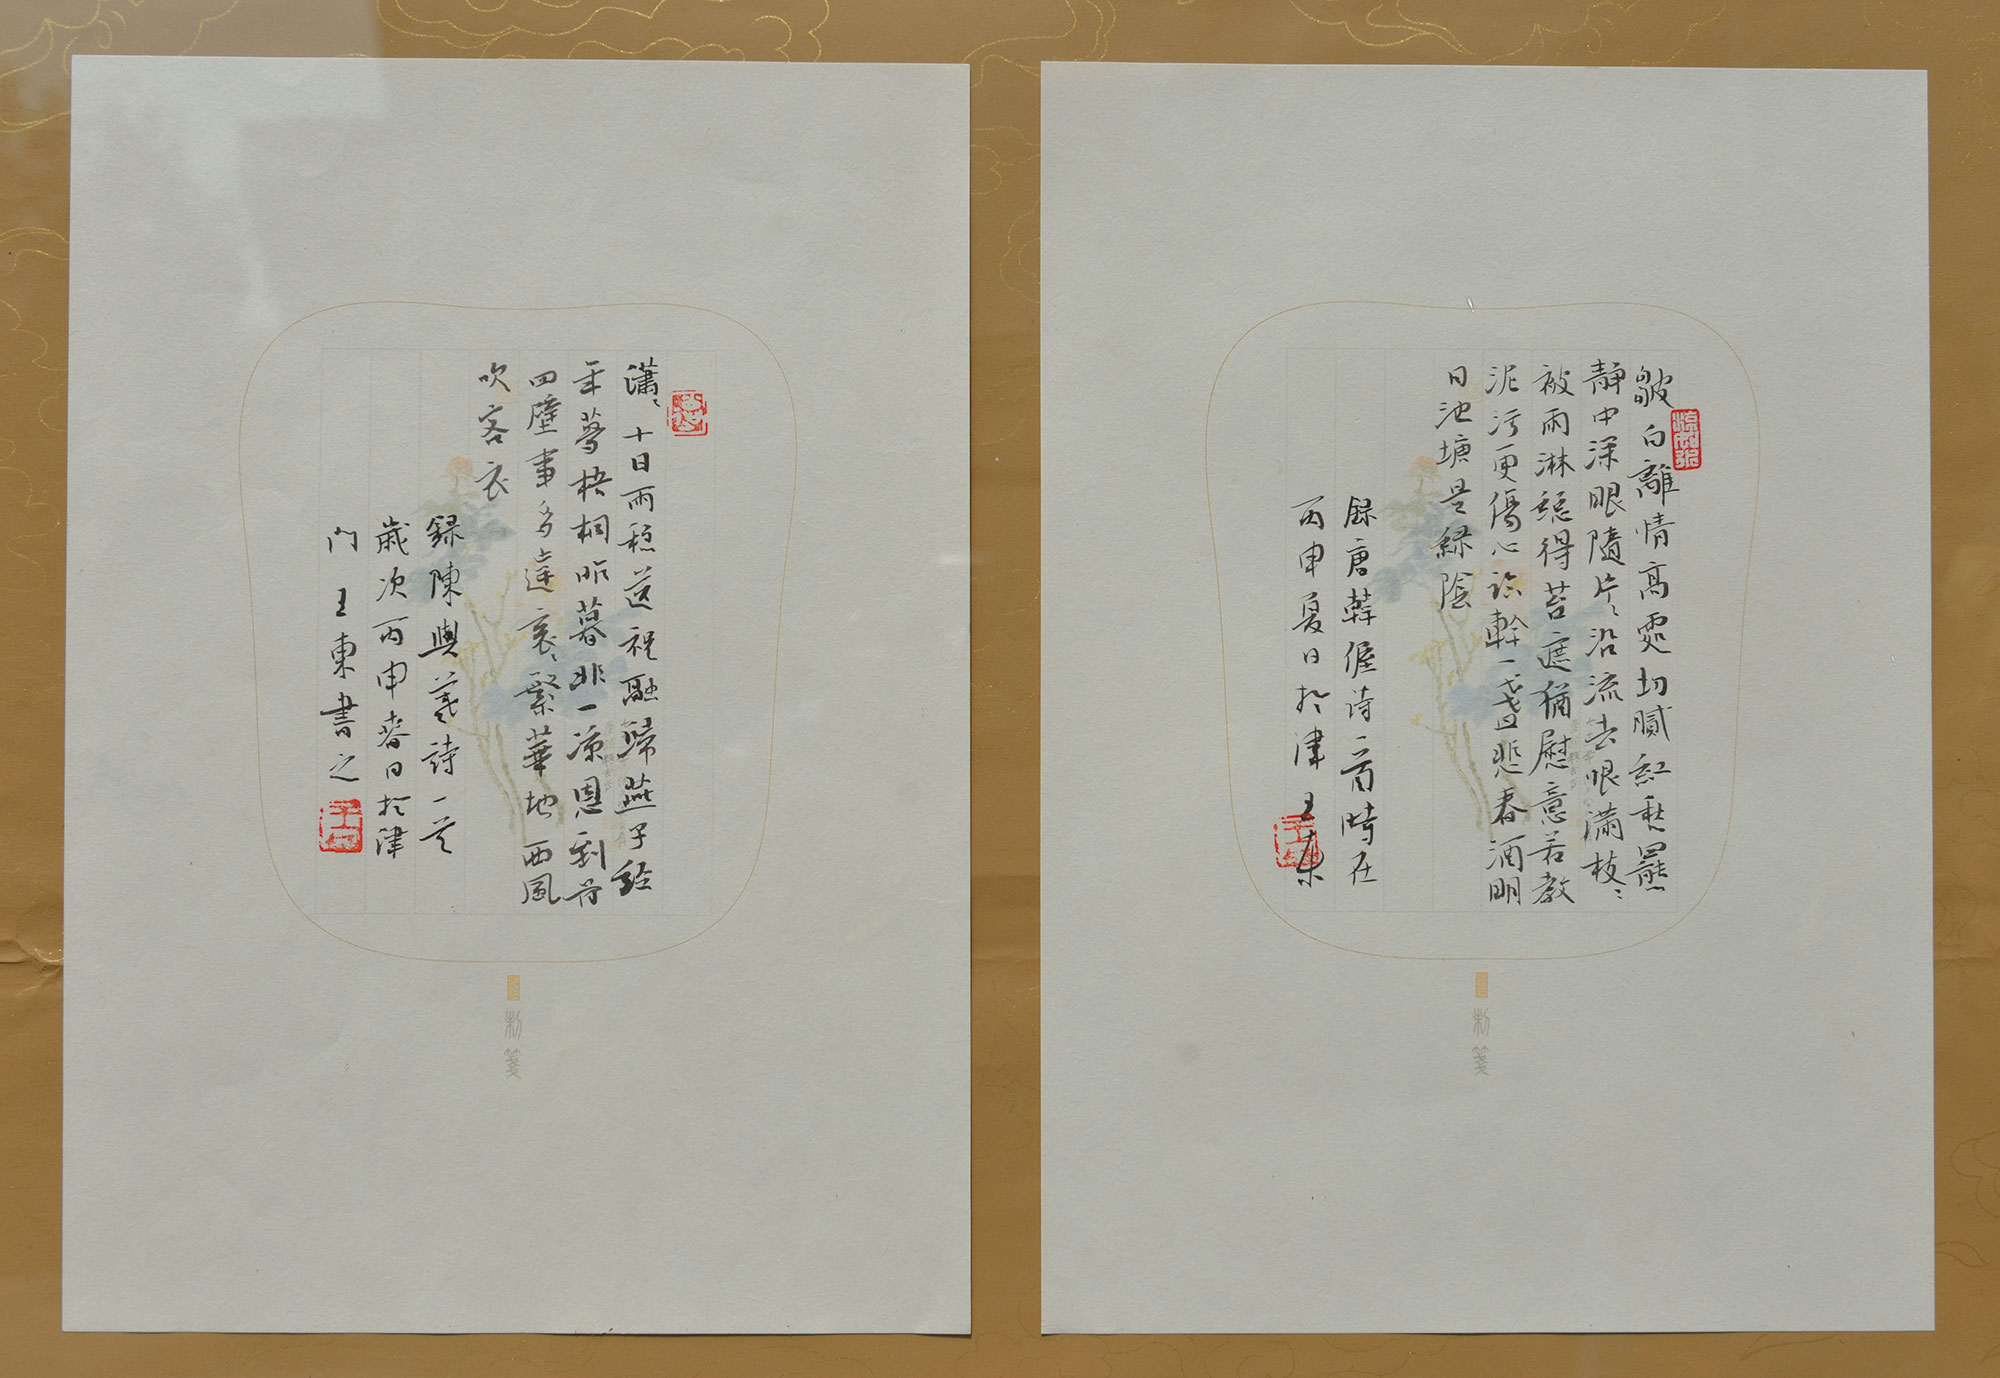 皺白離情高處切膩紅愁態
靜中深眼隨片〻沿流去恨滿枝〻
被雨淋總得苔遮猶慰意若教
泥污更傷心臨軒一盞悲春酒明
日池塘是綠陰
錄唐韓偓詩一首時在
丙申夏日於津 王東
制箋
瀟〻十日雨穩送祝融歸燕子經
年夢梧桐昨暮非一涼恩到骨
四壁事多違衮〻繁華地西風
吹客衣
錄陳與義詩一首
歲次丙申春日於津
門 王東書之
制箋